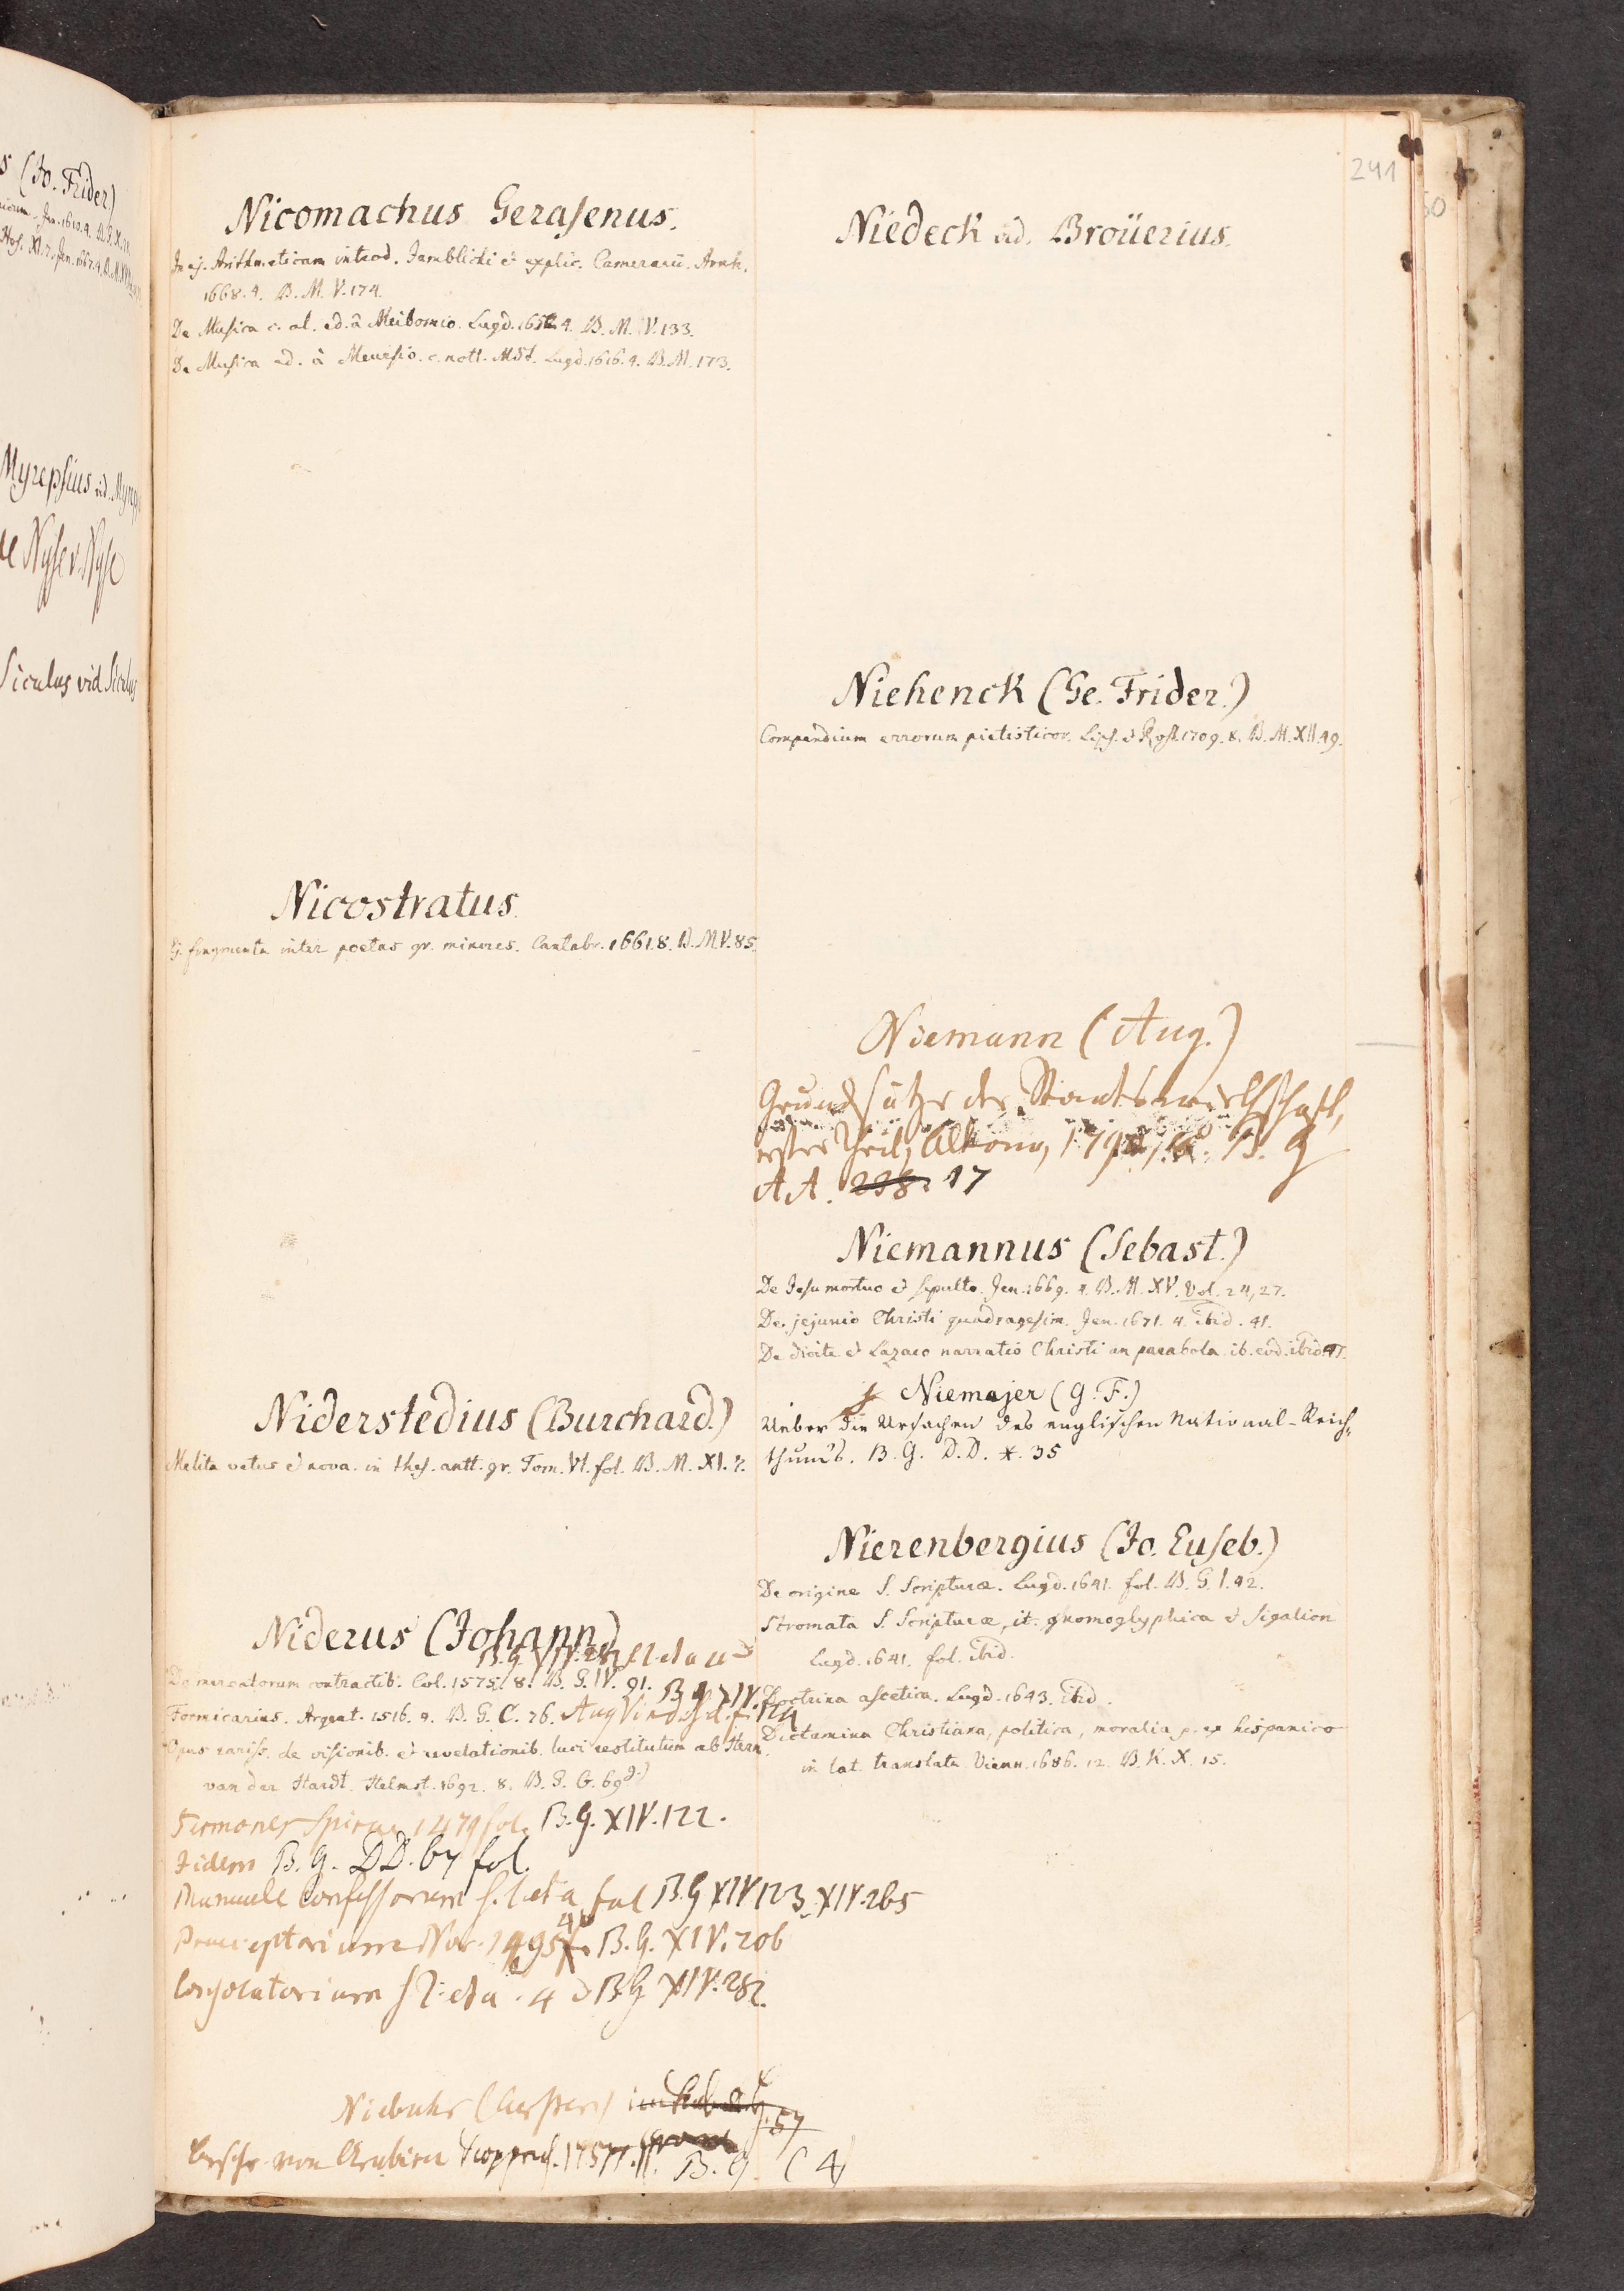 s (Jo. Frider.)
Myrepsius vid.
Nyse v. Nyse
Siculus vid Siculus
241
Nicomachus Gerasenus.
In ej. Arithmeticam introd. Jamblichi & explic. Camerarii. Arnh.
1668. 4. B. M. V. 174.
De Musica c. al. ed. à Meibomio. Lugd. 1652. 4. B. M. IV. 133.
De Musica ed. à Meursio. c. nott. MSt. Lugd. 1616. 4. B. M. 173.
Nicostratus.
Ej. fragmenta inter poetas gr. minores. Cantabr. 1661. 8. B. M. V. 85.
Niderstedius (Burchard.)
Melita vetus & nova. in thes. antt. gr. Tom. VI. fol. B. M. XI. 7.
Niderus (Johann)
B. G. XIV. 282 s. l. et a
De mercatorum contractib. Col. 1575. 8. B. G. IV. 91. B G XIV.
Formicarius. Argent. 1516. 4. B. G. C. 76. Aug Vind. f. 124
Opus rariss. de visionib. & revelationib. luci restitutum ab Herm.
van der Hardt. Helmst. 1692. 8. B. G. G. 69
Sermones Spirae 1479 fol. B. G. XIV. 122.
Iidem B. G. DD. 67 fol.
Manuale Confessorum s. l. et a fol B. G XIV 123. XIV. 265
Praeceptorium Nor. 1495 4 B. G. XIV. 206
Consolatorium s l. et a. 4 B G XIV. 282.
Niebuhr (Carsten)
57
Beschr. von Arabien B. G. (4)
Niedeck vid. Broüerius.
Niehenck (Ge. Frider.)
Compendium errorum pietisticor. Lips. & Rost. 1709. 8. B. M. XII. 49.
Niemann (Aug.)
Grundsätze der Staatswirthschaft,
erster Theil, Altona, 1790, B. G
AA. 238. 17
Niemannus (Sebast.)
De Jesu mortuo & sepulto. Jen. 1669. 4. B. M. XV. Vol. 24, 27.
De jejunio Christi quadragesim. Jen. 1671. 4. ibid. 41.
De divite & Lazaro narratio Christi an parabola. ib. eod. ibid. 47.
Niemejer (G. F.)
Ueber die Ursachen des englischen National-Reich-
thum's. B. G. D. D. *. 35
Nierenbergius (Jo. Euseb.)
De origine S. Scripturæ. Lugd. 1641. fol. B. G. I. 42.
Stromata S. Scripturæ, it. gnomoglyphica & Sigalion
Lugd. 1641. fol. ibid.
Doctrina ascetica. Lugd. 1643. ibid.
Dictamina Christiana, politica, moralia p. ex hispanico
in lat. translata Vienn. 1686. 12. B. K. X. 15.